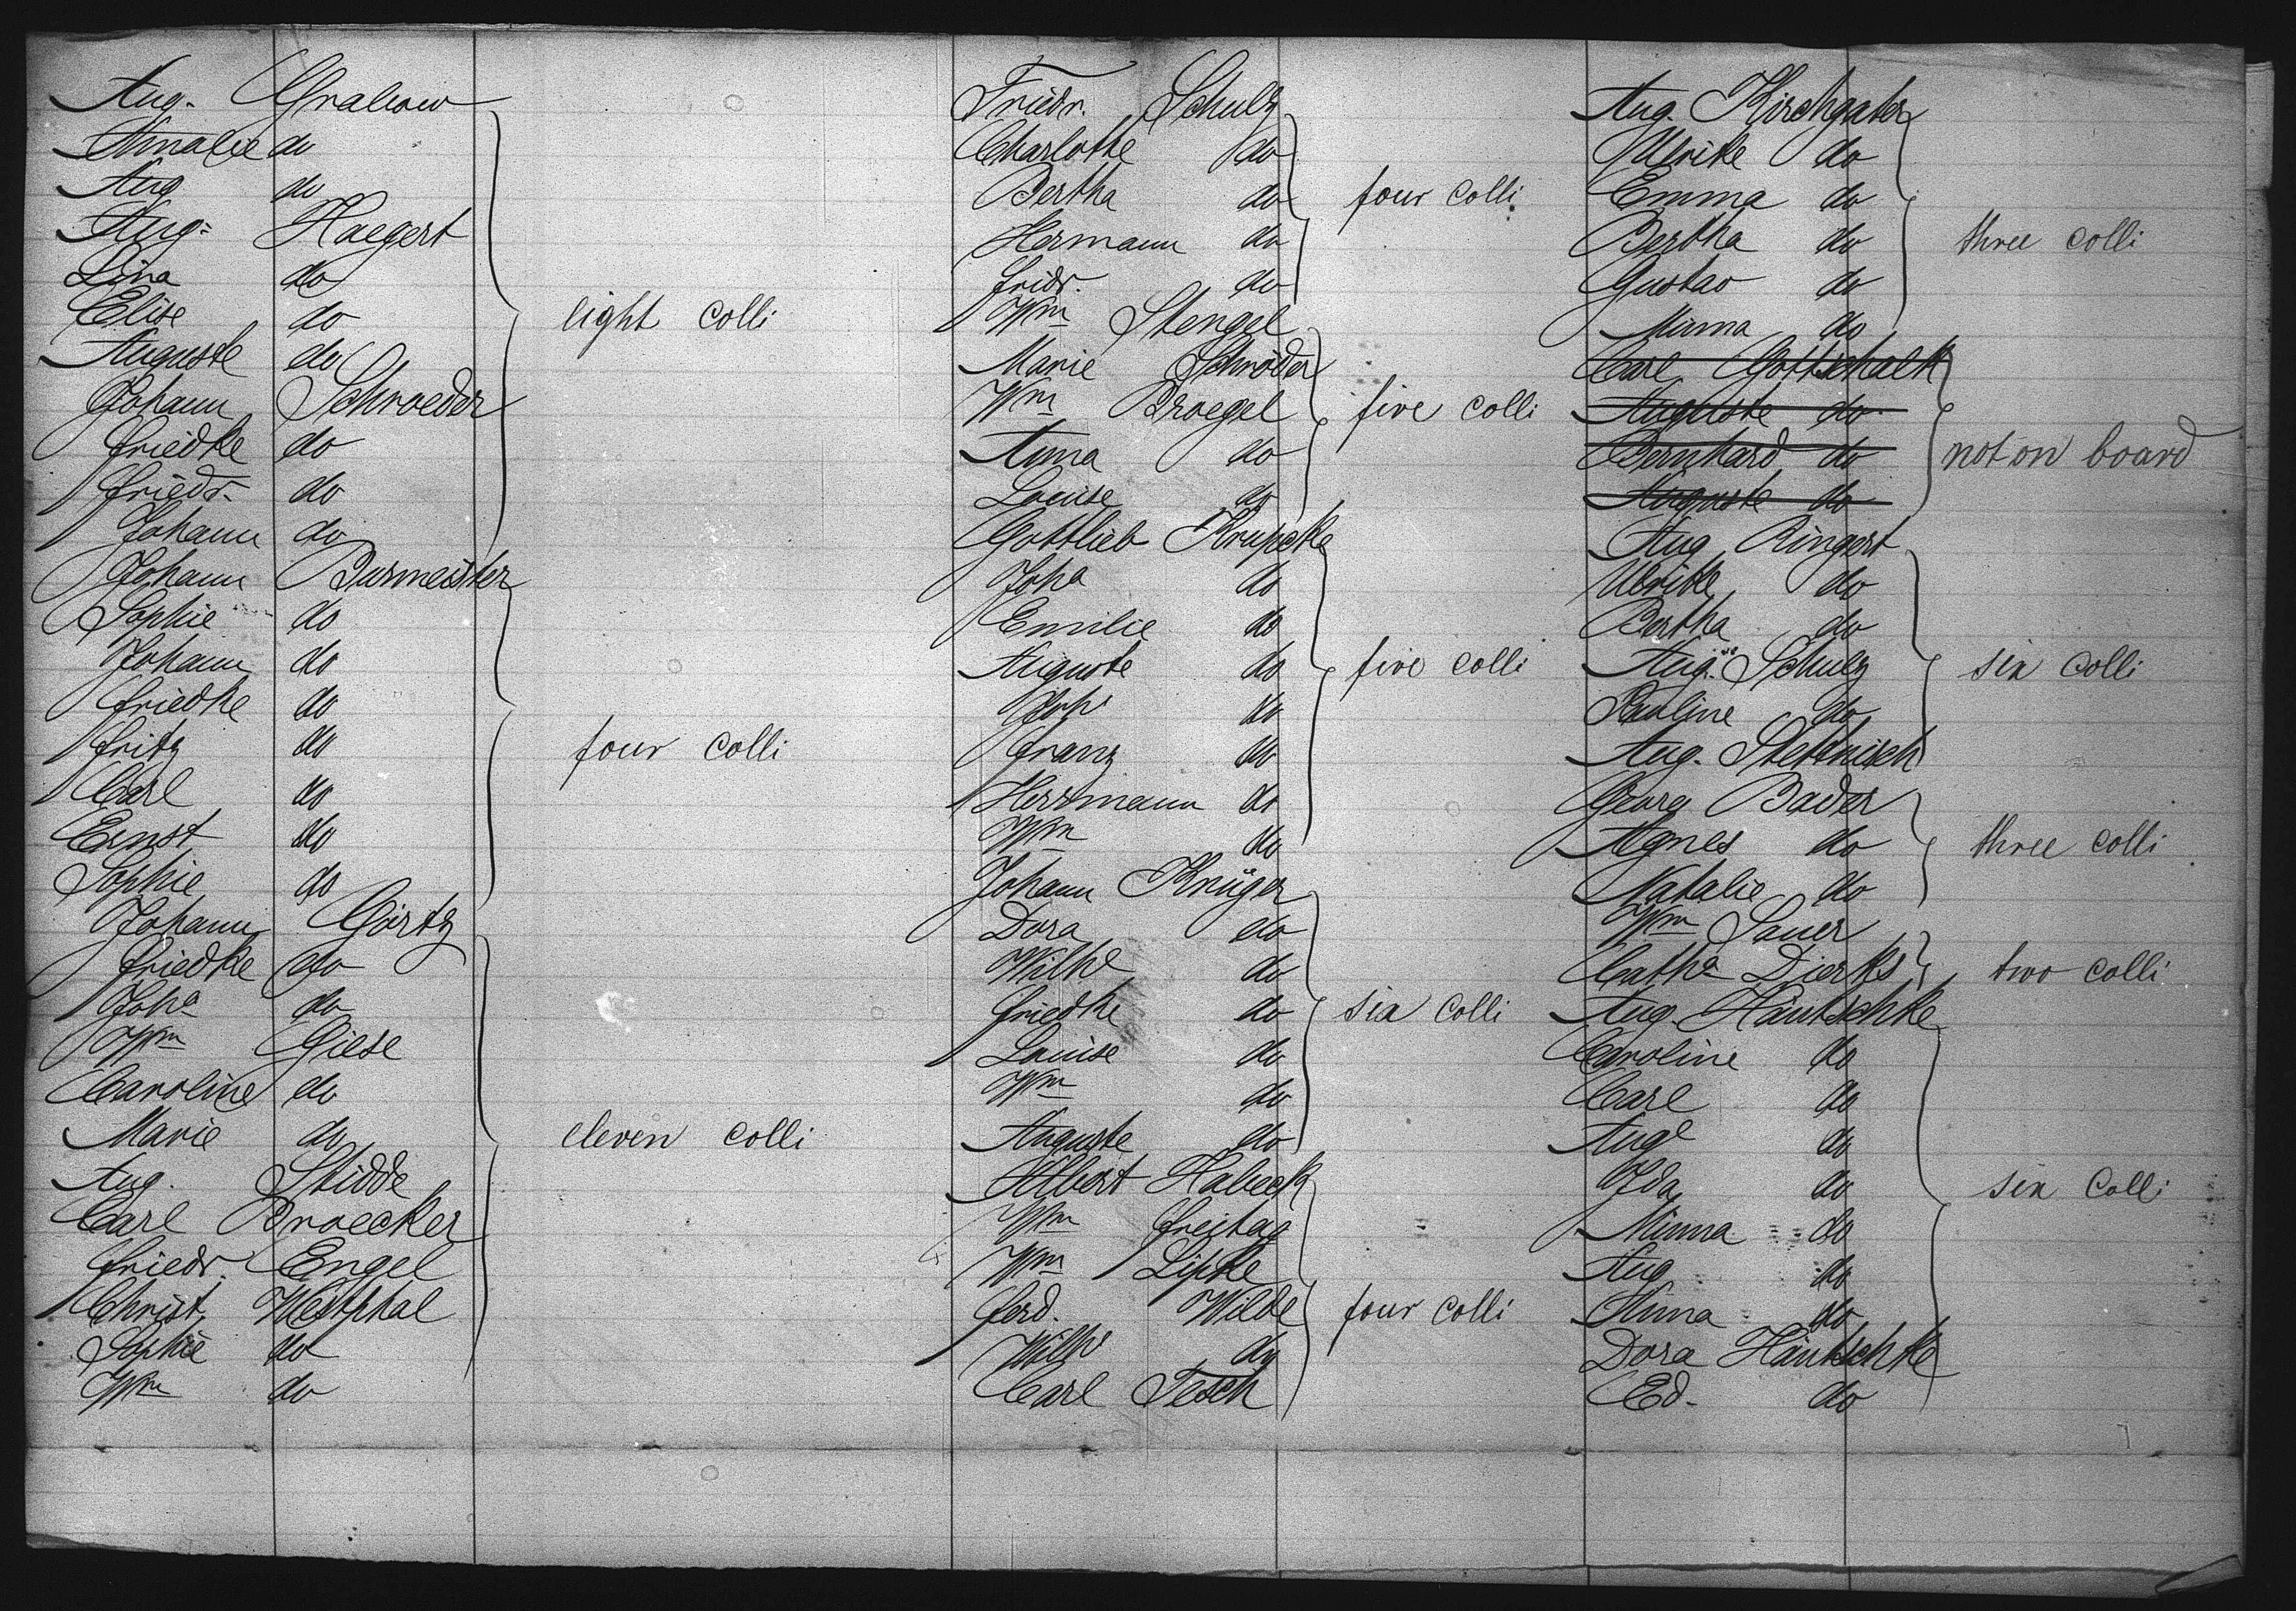 Aug. Grabow
Amalie do
Aug do
Aug. Haegert
Lina do
Elise do
eight colli
Auguste do
Johann Schroeder
Friedke do
Friedr. do
Johann do
Johann Burmeister
Sophie do
Johann do
Friedke do
Fritz do
four colli
Carl do
Ernst do
Sophie do
Johann Görtz
Friedke do
Joha do
Wm Giese
Caroline do
Marie do
eleven colli
Aug. Stidde
Carl Broecker
Friedr. Engel
Christ. Westphal
Sophie do
Wm do
Friedr. Schulz
Charlotte do
Bertha do four colli
Hermann do
Fridr. do
Wm Stengel
Marie Schröder
Wm Broegel five colli
Anna do
Louise do
Gottlieb Krupcke
Joha do
Emilie do
Auguste do five colli
Johs do
Franz do
Herrmann do
Wm do
Johann Krüger
Dora do
Wilhe do
Friedke do six colli
Louise do
Wm do
Auguste do
Albert Habeck
Wm Freitag
Wm Lipke
Ferd. Wilde four colli
Wilhe do
Carl Tesch
Aug. Kirchgater
Ulrike do
Emma do
Bertha do three colli
Gustav do
Minna do
Carl Gottschalk
Auguste do
Bernhard do not on board
Auguste do
Aug Ringert
Ulrike do
Bertha do
Aug. Schulz six colli
Pauline do
Aug. Stettnisch
Georg Bader
Agnes do three colli
Natalie do
Wm Sauer
Catha Dierks two colli
Aug. Häntschke
Caroline do
Carl do
Auge do
Ida do six colli
Minna do
Aug do
Anna do
Dora Häntschke
Ed. do